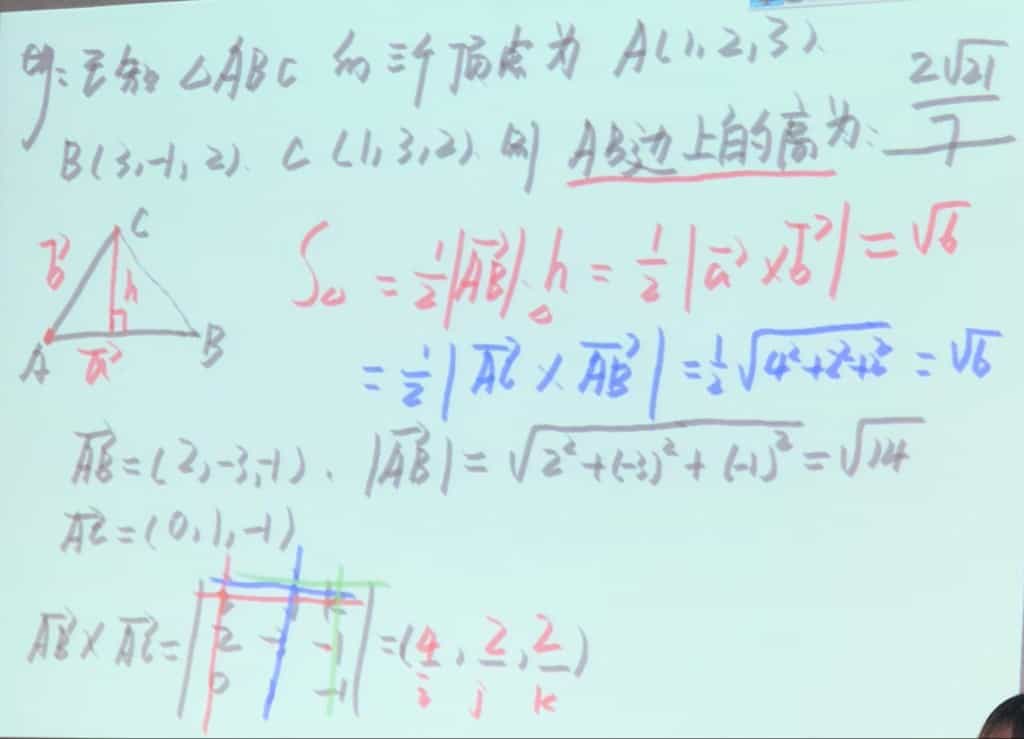 例:已知 △ABC 的三个顶点为 A(1,2,3).
B(3,-1,2). C(1,3,2) 则 AB边上的高为: 2√21/7
C
b⃗ h
A a⃗ B
S△ = 1/2|AB⃗|·h = 1/2|a⃗×b⃗| = √6
= 1/2|AC⃗ × AB⃗| = 1/2√(4²+2²+2²) = √6
AB⃗ = (2,-3,-1). |AB⃗| = √(2²+(-3)²+(-1)²) = √14
AC⃗ = (0,1,-1)
AB⃗ × AC⃗ = | 2 -1 0 -1 | = (4, 2, 2)
i j k